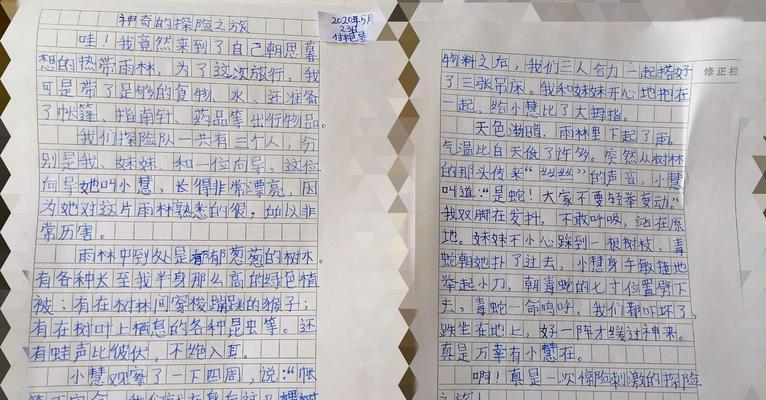 神奇的探险之旅
2020年5月
23日
哇！我竟然来到了自己朝思暮
想的热带雨林，为了这次旅行，我
可是带了足够的食物、水，还准备
了帐篷、指南针、药品等出行物品。
我们探险队一共有三个人，分
别是我、妹妹、和一位向导，这位
向导她叫小慧，长得非常漂亮，因
为她对这片雨林熟悉的很，所以非
常厉害。
雨林中到处是郁郁葱葱的树木。
有各种长至我半身那么高的绿色植
被；有在树林间穿梭蹦跳的猴子；
有在树叶上栖息的各种昆虫等。还
有蛙声比彼伏，不绝入耳。
小慧观察了一下四周，说：“帐
物料之后，我们三人合力一起搭好
了三张吊床。我和妹妹开心地抱在
一起，给小慧比了大拇指。
修正栏
天色渐暗，雨林里下起了雨，
气温比白天低了许多。突然从树林
的那头传来“丝丝丝”的声音，小慧
叫道：“是蛇！大家不要轻举妄动。”
我双脚在发抖，不敢呼吸，站在原
地。妹妹不小心踩到一根树枝，毒
蛇朝她扑了过去，小慧身手敏捷地
举起小刀，朝毒蛇的七寸位置劈下
去，毒蛇一命呜呼。我们都吓坏了，
跌坐在地上，好一阵才缓过神来。
真是万幸有小慧在。
啊！真是一次惊险刺激的探险